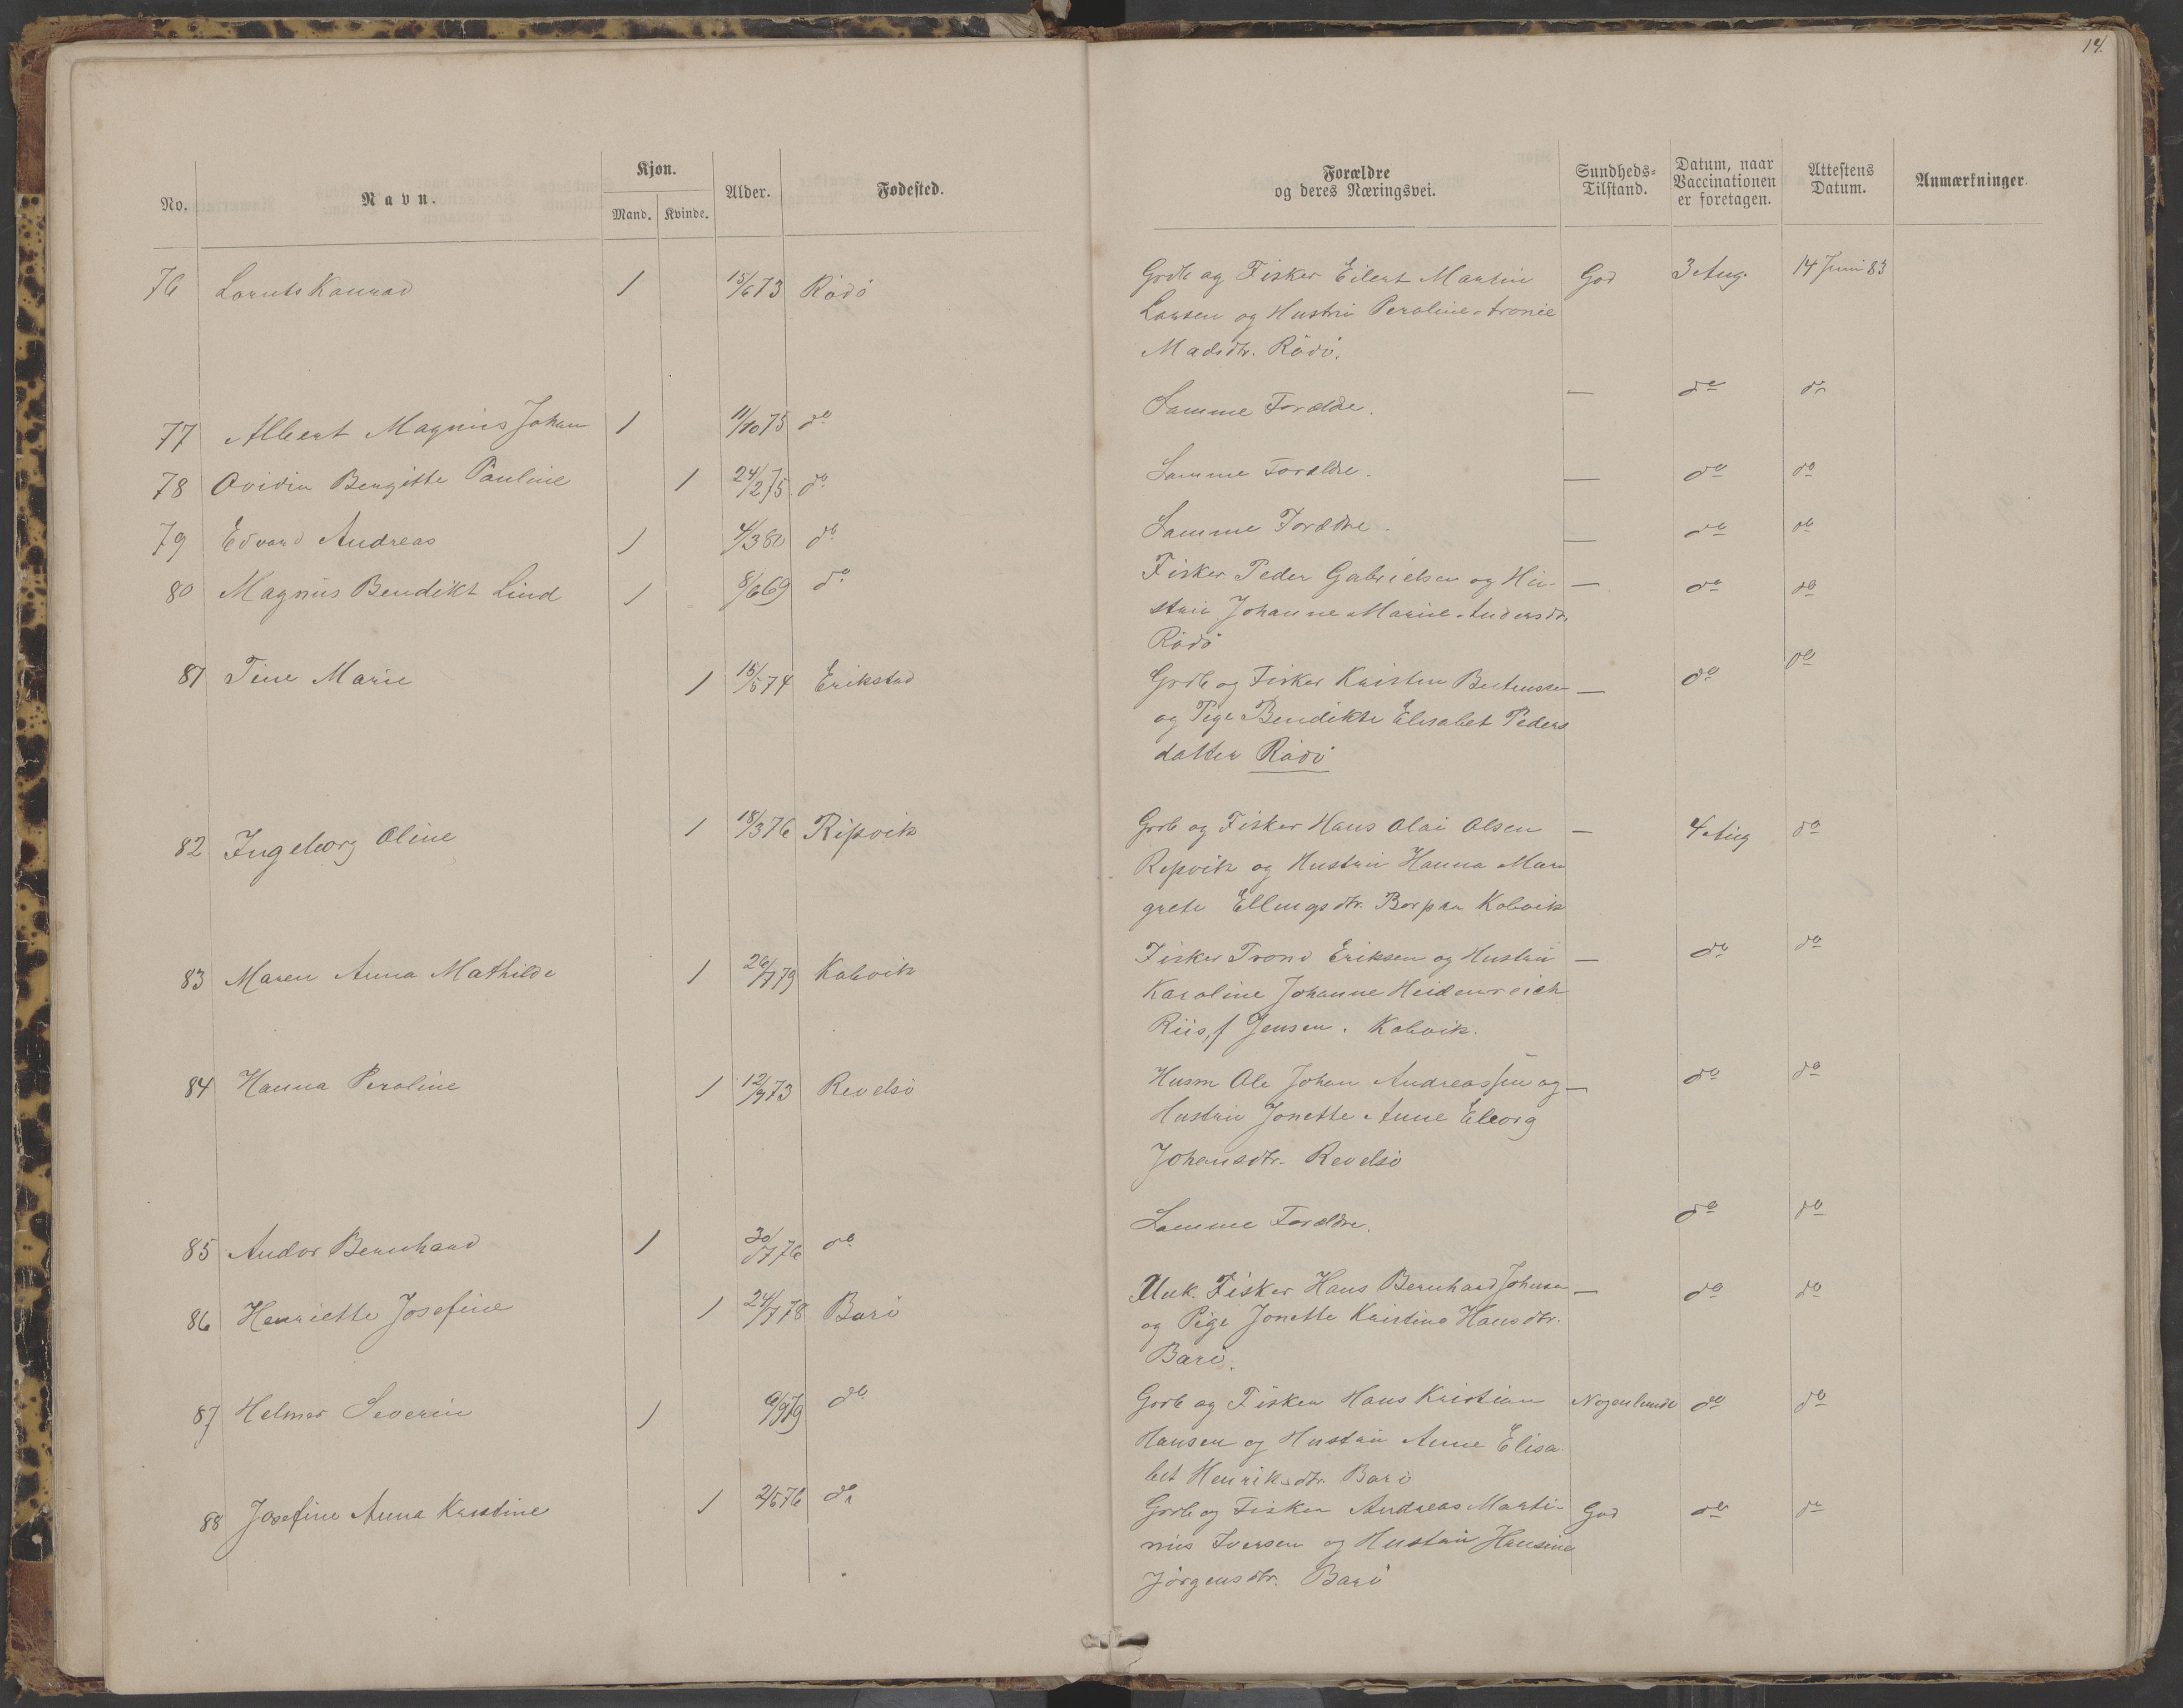 14.
No.
Navn.
Kjøn.
Mand. Kvinde.
Alder.
Fødested.
Forældre
og deres Næringsvei.
Sundheds-
Tilstand.
Datum, naar
Vaccinationen
er foretagen.
Attestens
Datum.
Anmærkninger
76 Lornts Konrad 1 15/6 73 Rödö Grdb og Fisker Eilert Martin God 3 Aug. 14 Juni 83
Larsen og Hustru Peroline
Madsdtr. Rödö.
77 Albert Magnus Johan 1 11/10 75 do Samme Forældre. — do do
78 Ovidia Bergitte Pauline 1 24/2 75 do Samme Forældre. — do do
79 Edvard Andreas 1 4/3 80 do Samme Forældre. — do do
80 Magnus Bendikt Lind 1 8/6 69 do Fisker Peder Gabrielsen og Hu- — do do
stru Johanne Marie Andersdtr.
Rödö
81 Tine Marie 1 15/5 74 Erikstad Grdb og Fisker Kristen — do do
og Pige Bendikte Elisabet Peders
datter Rödö
82 Ingeborg Oline 1 18/3 76 Ripvik Grdb og Fisker Hans Olai Olsen — 4 Aug do
Repvik og Hustru Hanna Mar-
grete Ellingsdtr. Bor paa Kobvik
83 Maren Anna Mathilde 1 26/7 79 Kobvik Fisker Trond Eriksen og Hustru — do do
Karoline Johanne Heidenreich
Riis, f Jensen. Kobvik.
84 Hanna Peroline 1 12/9 73 Revelsö Husm Ole Johan Andreassen og — do do
Hustru Jonette Anne Elborg
Johansdtr. Revelsö
85 Andor Bernhard 1 30/7 76 do Samme Forældre. do do
86 Henriette Josefine 1 24/7 78 Barö Unk. Fisker Hans Bernhard Johnsen — do do
og Pige Jonette Kristine Hansdtr.
Barö.
87 Helmer Severin 1 6/9 79 do Grdb og Fisker Hans Kristian Nogenlunde do do
Hansen og Hustru Anne Elisa-
bet Henriksdtr. Barö
88 Josefine Anna Kristine 1 2/5 76 do Grdb og Fisker Andreas Marti- God do do
nus Iversen og Hustru Hansine
Jörgensdtr. Barö